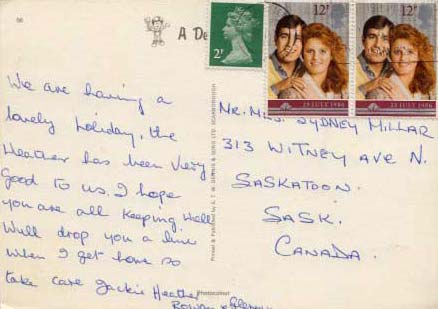 66
A De
2P
12P
12P
23 JULY 1986
23 JULY 1986
We are having a
lovely holiday, the
Heather has been very
Good to us. I hope
you are all keeping well
Will drop you a line
when I get home so
take care Jackie Heather
Rowan &
Mr. Mrs. SYDNEY MILLAR
313 WITNEY AVE N.
SASKATOON.
SASK.
CANADA.
Printed & Published by E. T. W. DENNIS & SONS LTD. SCARBOROUGH
Photocolour